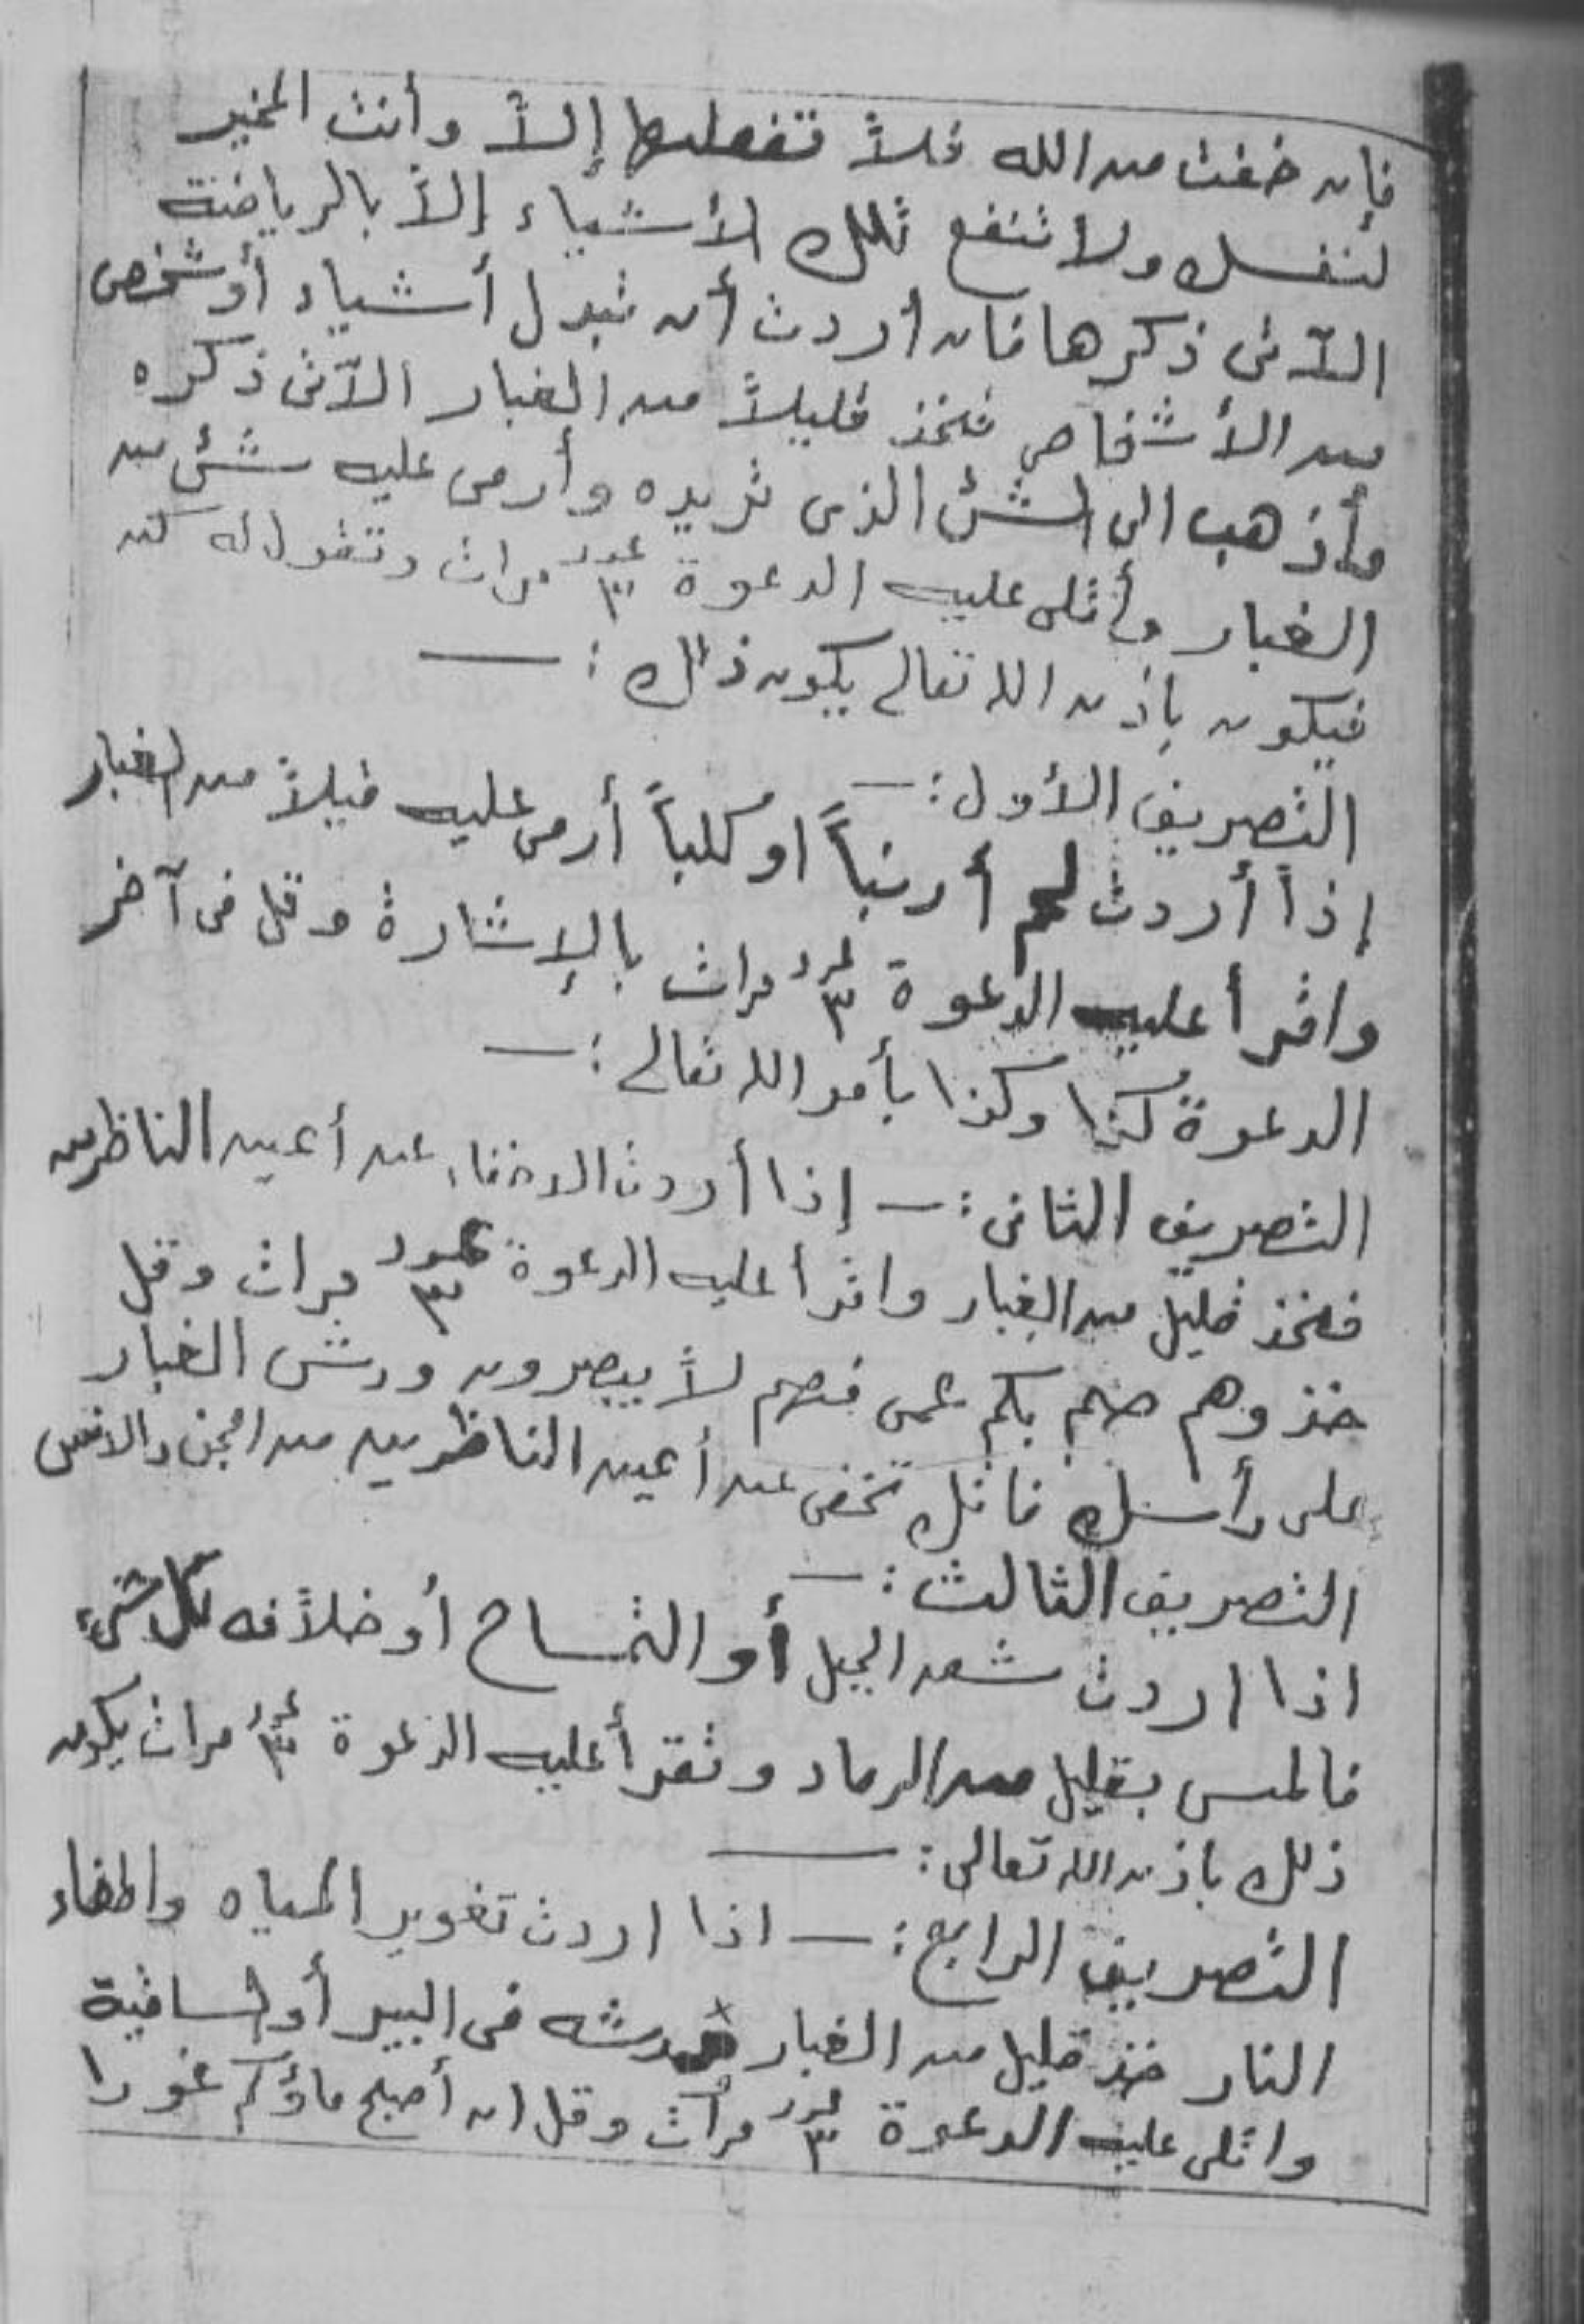 فإن خفت من الله فلاً تفعلها إلاً وأنت المخير
لنفسك ولا تنفع تلك الأشياء إلاً بالرياضة
الآتى ذكرها فان أردت أن تبدل أشياء أو شخص
من الأشخاص فتخذ قليلاً من الغبار الآتى ذكره
وأذهب الى الشئ الذى تريده وأرمى عليه شئ من
الغبار وأتلى عليه الدعوة عدد ٣ مرات وتقول له كن
فيكون بإذن الله تعالى يكون ذلك :ــ
التصريف الأول :ــ
إذاً أردت لحم أرنباً او كلباً أرمى عليه قيلاً من الغبار
واقرأ عليه الدعوة عدد ٣ مرات بالإشارة وقل فى آخر
الدعوة كذا وكذا بأمر الله تعالى :ــ
التصريف الثانى :ــ إذا أردت الاخفاء عن أعين الناظرين
فتخذ قليل من الغبار واقرأ عليه الدعوة عدد ٣ مرات وقل
خذوهم صم بكم عمى فهم لاً يبصرون ورش الغبار
على رأسك فانك تخفى عن أعين الناظرين من الجن والانس
التصريف الثالث :ــ
اذا اردت شعر الجبل أو التمساح أو خلاًفه كل شىء
فالمس بقليل من الرماد وتقرأ عليه الدعوة عدد ٣ مرات يكون
ذلك باذن الله تعالى :ــ
التصريف الرابع :ــ اذا اردت تغوير المياه واطفاء
النار خذ قليل من الغبار ورشه فى البير أو الساقية
واتلى عليه الدعوة عدد ٣ مرات وقل ان أصبح ماؤكم غورا